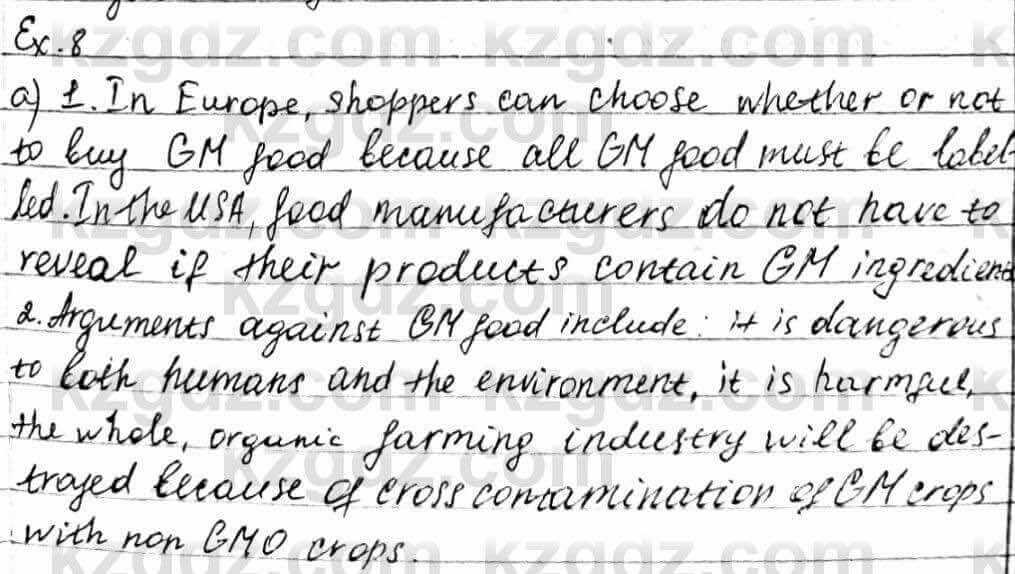 Ex. 8
a) 1. In Europe, shoppers can choose whether or not
to buy GM food because all GM food must be label-
led. In the USA, food manufacturers do not have to
reveal if their products contain GM ingredients
2. Arguments against GM food include: it is dangerous
to both humans and the environment, it is harmful,
the whole, organic farming industry will be des-
troyed because of cross contamination of GM crops
with non GMO crops.